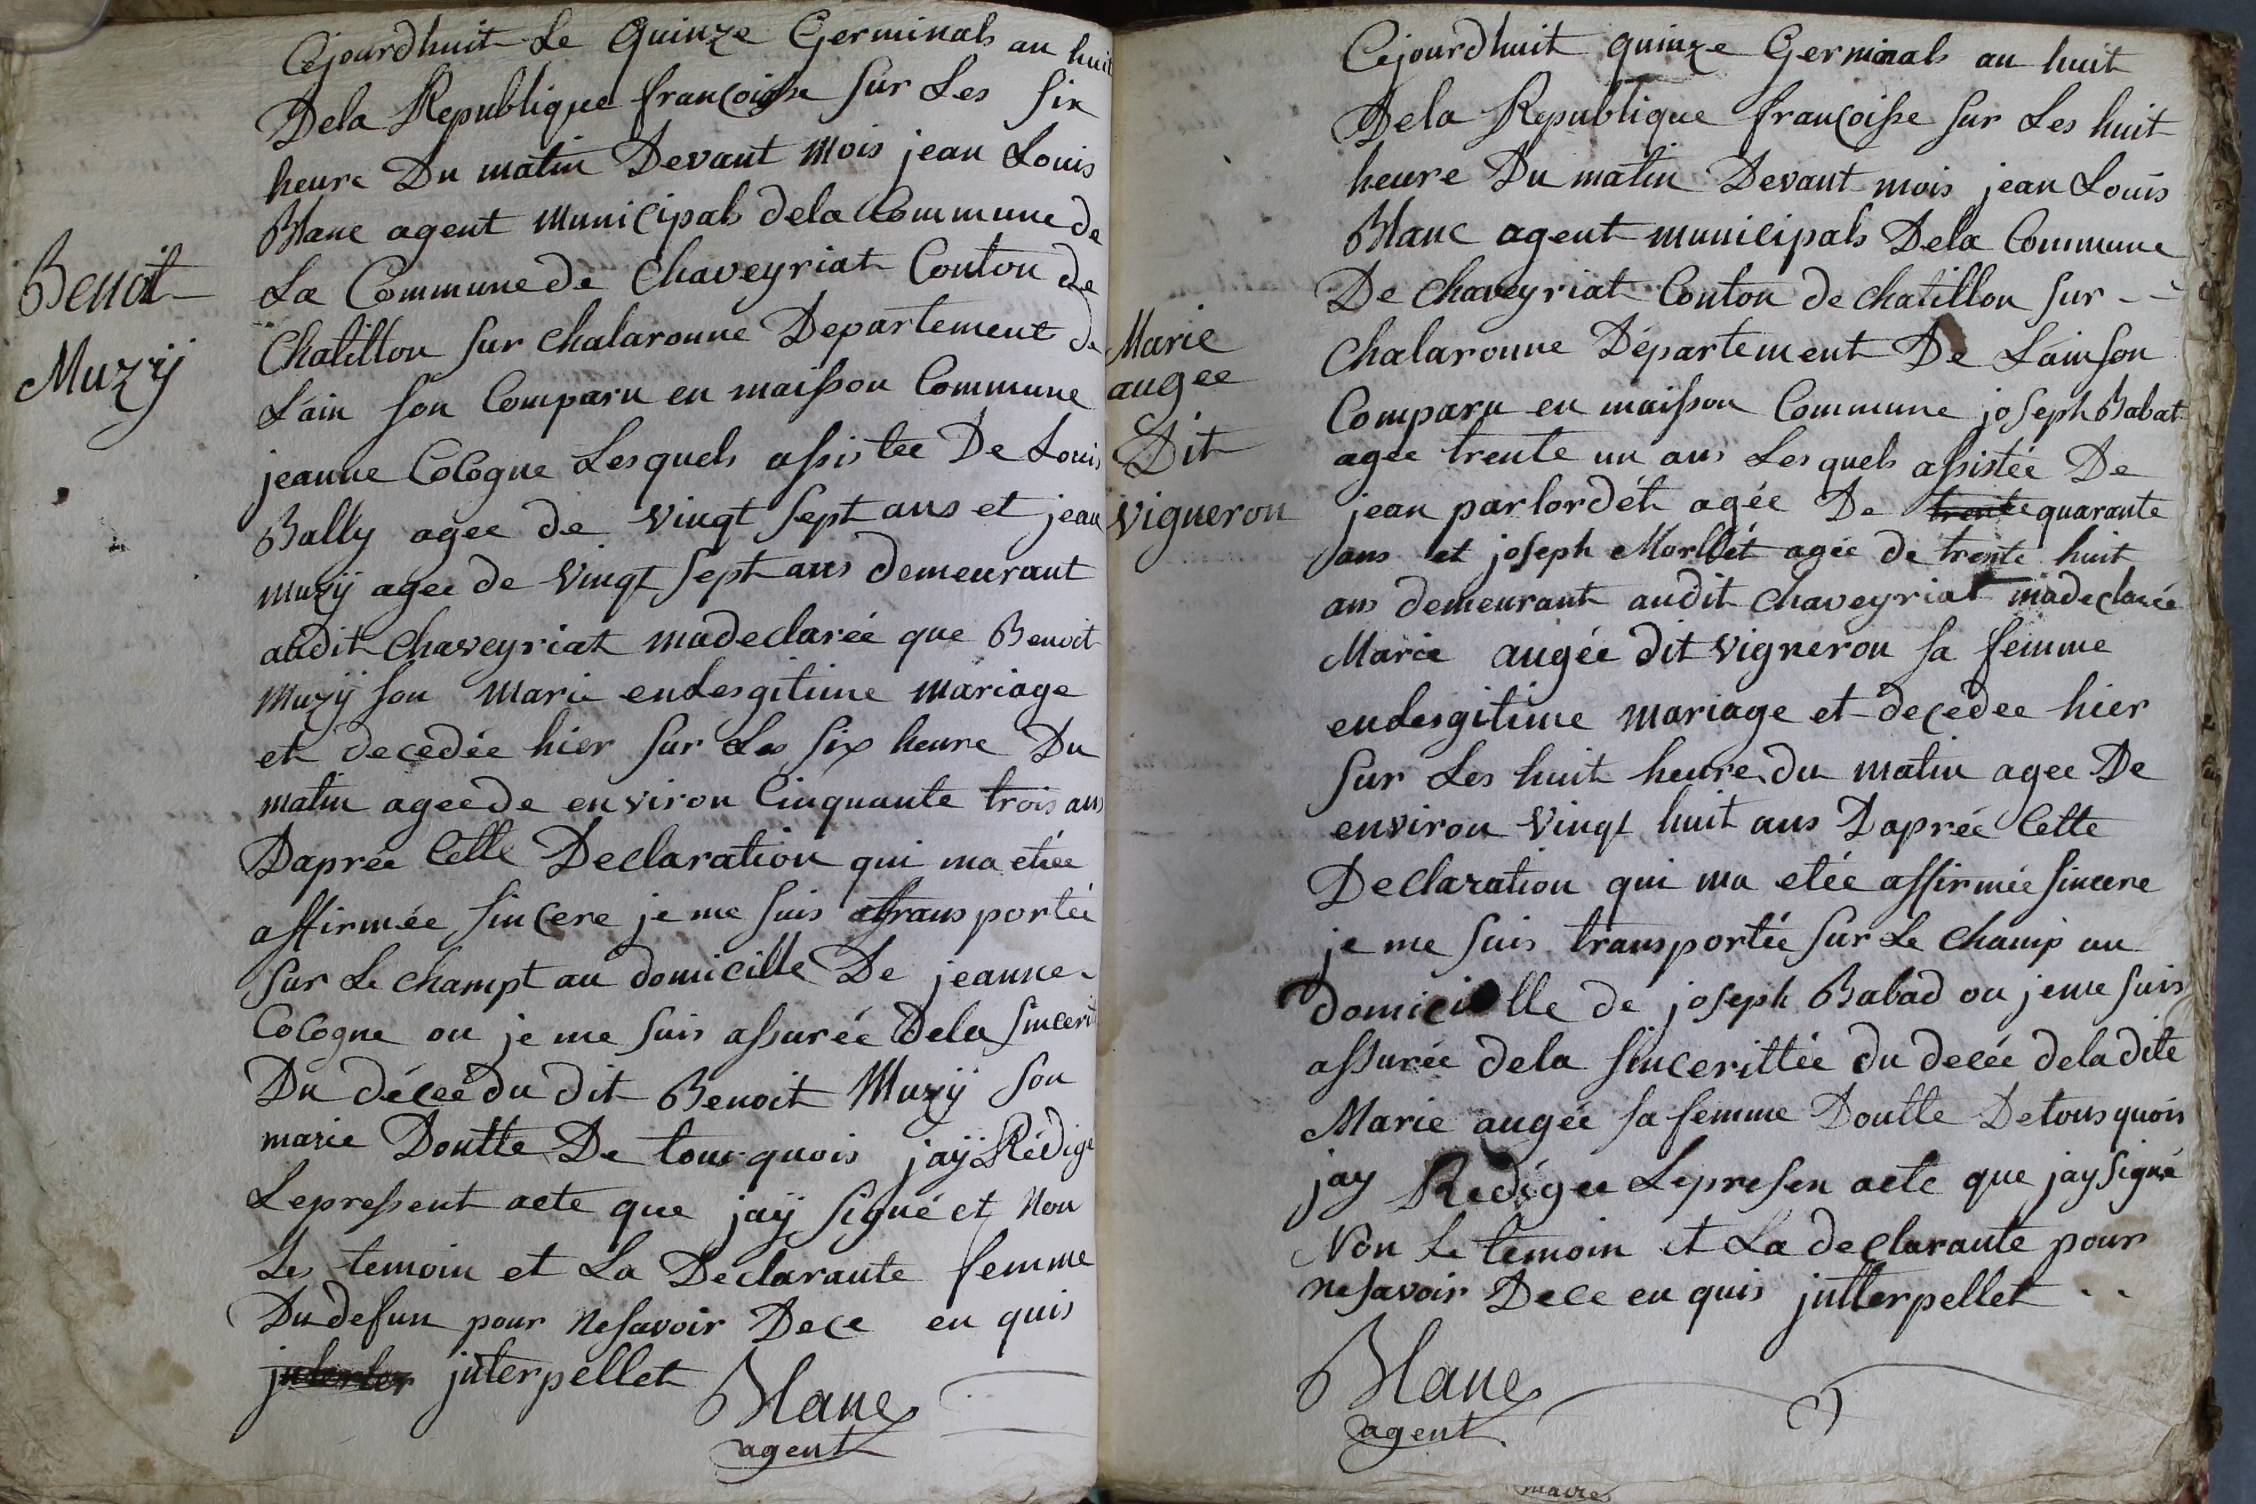 Benoit
Muzÿ
Cejourdhuit Le Quinze Germinals an huit
Dela Republique francoisse sur Les six
heure Du matin Devant mois jean Louis
Blanc agent municipals dela Commune de
La Commune de Chaveyriat Conton de
Chatillon sur chalaronne Departement de
L'ain son Comparu en maisson Commune
jeanne Cologne Lesquels assistee De Louis
Bally agee de vingt sept ans et jean
muzÿ agee de vingt sept ans demeurant
audit chaveyriat madeclarée que Benoit
muzÿ son marie endesgitime mariage
et decedée hier sur Les six heure Du
matin agee de environ Cinquante trois ans
Daprée Cette Declaration qui ma etée
affirmée sincere je me suis transportée
sur Le champt au domicille De jeanne
Cologne ou je me suis assurée Dela sincerit
Du décée du dit Benoit Muzÿ son
marie Doutte De tous quois jaÿ Rédigé
Lepressent acte que jaÿ signé et Non
Les temoin et La Declarante femme
Du defun pour nesavoir Dece en quis
jnterpellet
Blanc
agent
Marie
augee
Dit
vigneron
Cejourdhuit quinze Germinals an huit
Dela Republique francoisse sur Les huit
heure Du matin Devant mois jean Louis
Blanc agent municipals Dela Commune
De chaveyriat Conton de chatillon sur --
chalaronne Département De L'ain son
Comparu en maisson Commune joseph Babat
agée trente un ans Les quels assistée De
jean parlordét agée De trente quarante
ans et joseph Morllét agée de trente huit
ans demeurant audit chaveyriat madeclarée
Marie augée dit vigneron sa femme
endesgitime mariage et decedee hier
sur Les huit heure du matin agee De
environ vingt huit ans Daprée Cette
Declaration qui ma etée affirmée sincere
je me suis transportée sur Le champ au
domicille de joseph Babad ou jeme suis
assurée dela sincerittée du decée deladite
Marie augée sa femme Doutte Detous quois
jay Redigée Lepresen acte que jay signé
Non Le temoin et La declarante pour
nesavoir Dece en quis jntterpellet ..
Blanc
agent